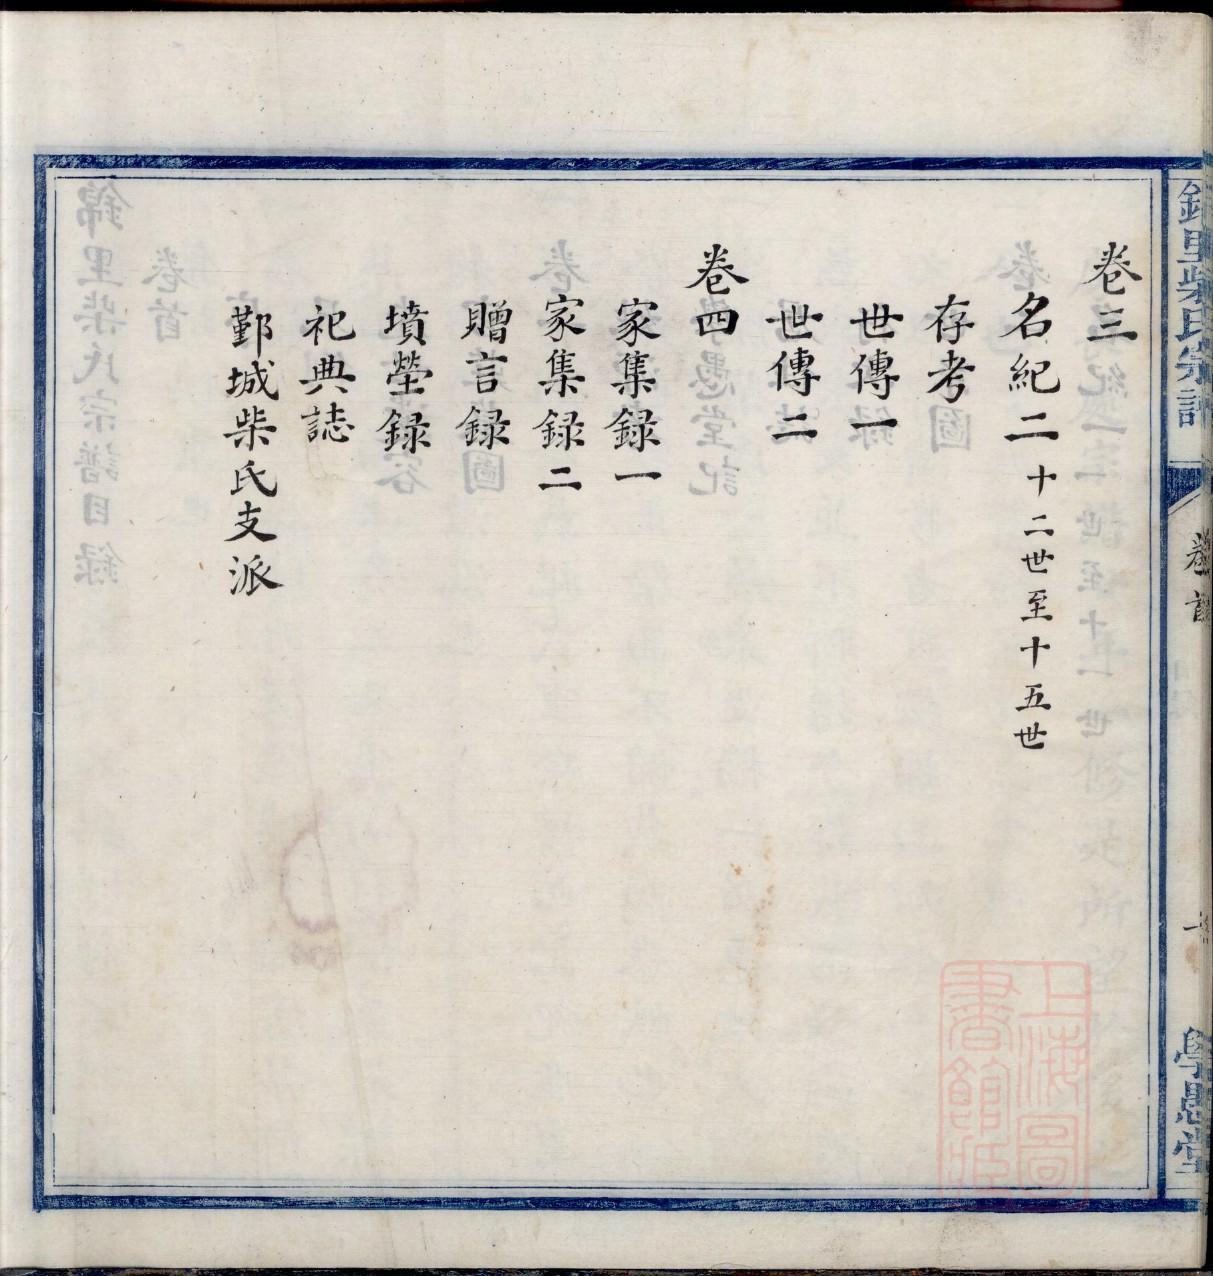 卷三
名紀二 十二世至十五世
存考
世傳一
世傳二
卷四
家集録一
家集録二
贈言録
墳塋録
祀典誌
鄞城柴氏支派
錦里柴氏宗譜
卷首
學愚堂
上海圖書館藏